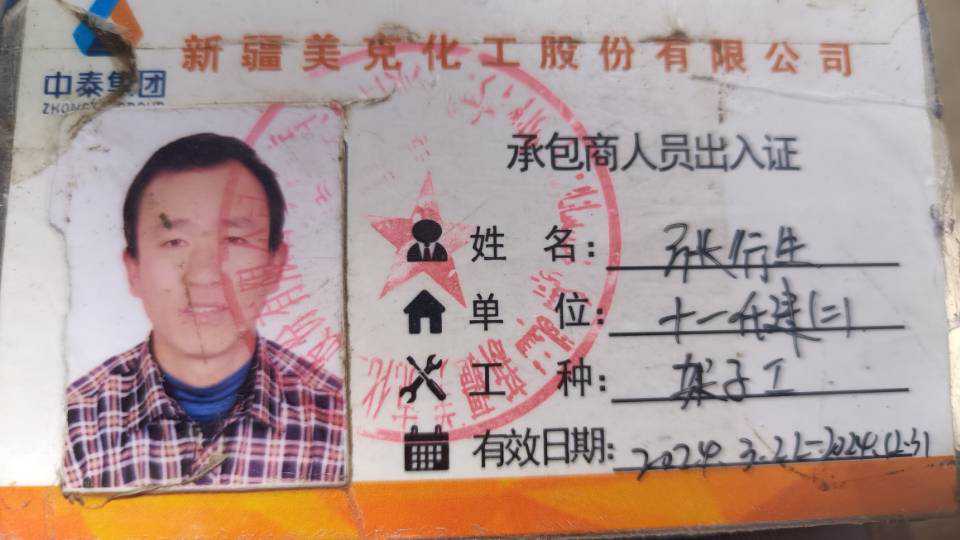 新疆美克化工股份有限公司
中泰集团
承包商人员出入证
姓 名: 张衍生
单 位: 十一化建(二)
工 种: 架子工
有效日期: 2024.3.22-2024.12.31